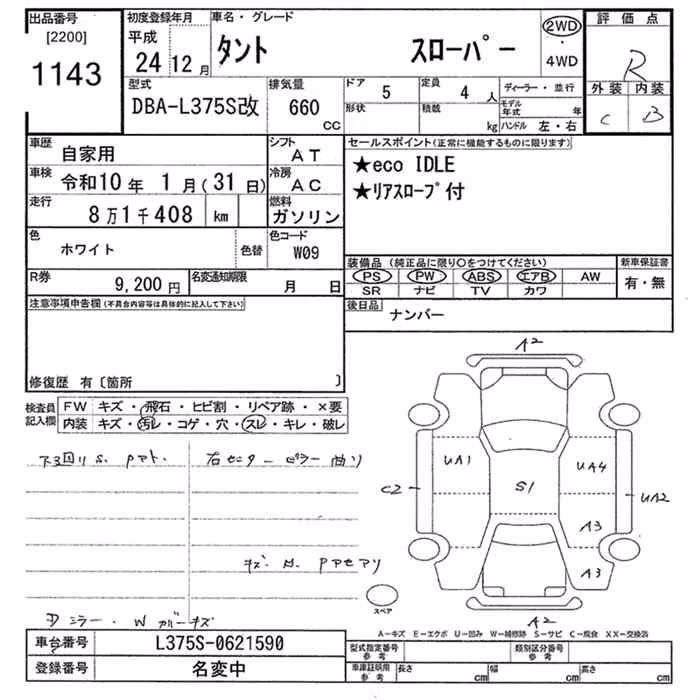 出品番号 [2200] 1143
初度登録年月 平成 24 12 月
車名・グレード タント スローパー
2WD ・ 4WD
評価点 R
外装 内装
C B
型式 DBA-L375S改
排気量 660 CC
ドア 5
形状
定員 4 人
積載 kg
ディーラー・並行
モデル年式 年
ハンドル 左・右
車歴 自家用
シフト AT
車検 令和10年 1月(31日)
冷房 AC
走行 8万1千408 km
燃料 ガソリン
色 ホワイト 色替
色コード W09
R券 9,200円
名変通知期限 月 日
セールスポイント(正常に機能するものに限ります)
★eco IDLE
★リアスロープ付
装備品(純正品に限り〇をつけてください)
PS PW ABS エアB AW
SR ナビ TV カワ
新車保証書 有・無
後日品 ナンバー
注意事項申告欄(不具合内容等は具体的に記入して下さい)
修復歴 有〔箇所 〕
検査員記入欄
FW キズ・飛石・ヒビ割・リペア跡・×要
内装 キズ・汚レ・コゲ・穴・スレ・キレ・破レ
右センターピラー曲り
ミラー・W キズ
A2
UA1 UA4
C2 S1 UA2
A3
A3
A2
スペア
A-キズ E-エクボ U-凹み W-補修跡 S-サビ C-腐食 XX-交換済
車台番号 L375S-0621590
登録番号 名変中
型式指定番号 参考
類別区分番号 参考
車庫証明用 参考 長さ cm 幅 cm 高さ cm